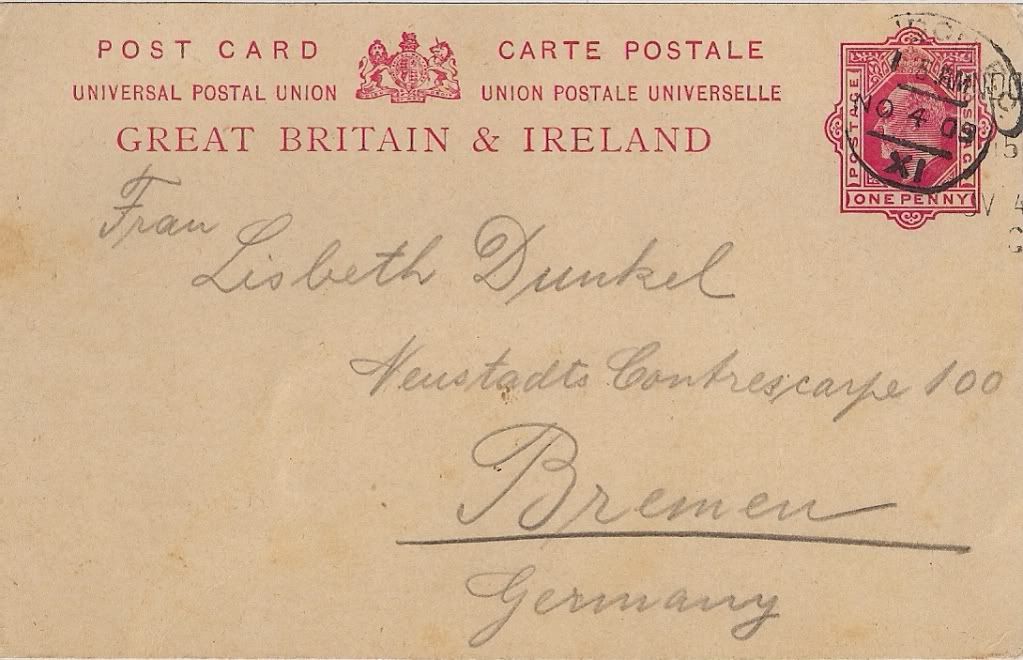 POST CARD CARTE POSTALE
UNIVERSAL POSTAL UNION UNION POSTALE UNIVERSELLE
GREAT BRITAIN & IRELAND
POSTAGE
ONE PENNY
AM
NO 4 09
XI
Frau
Lisbeth Dunkel
Neustadts Contrescarpe 100
Bremen
Germany